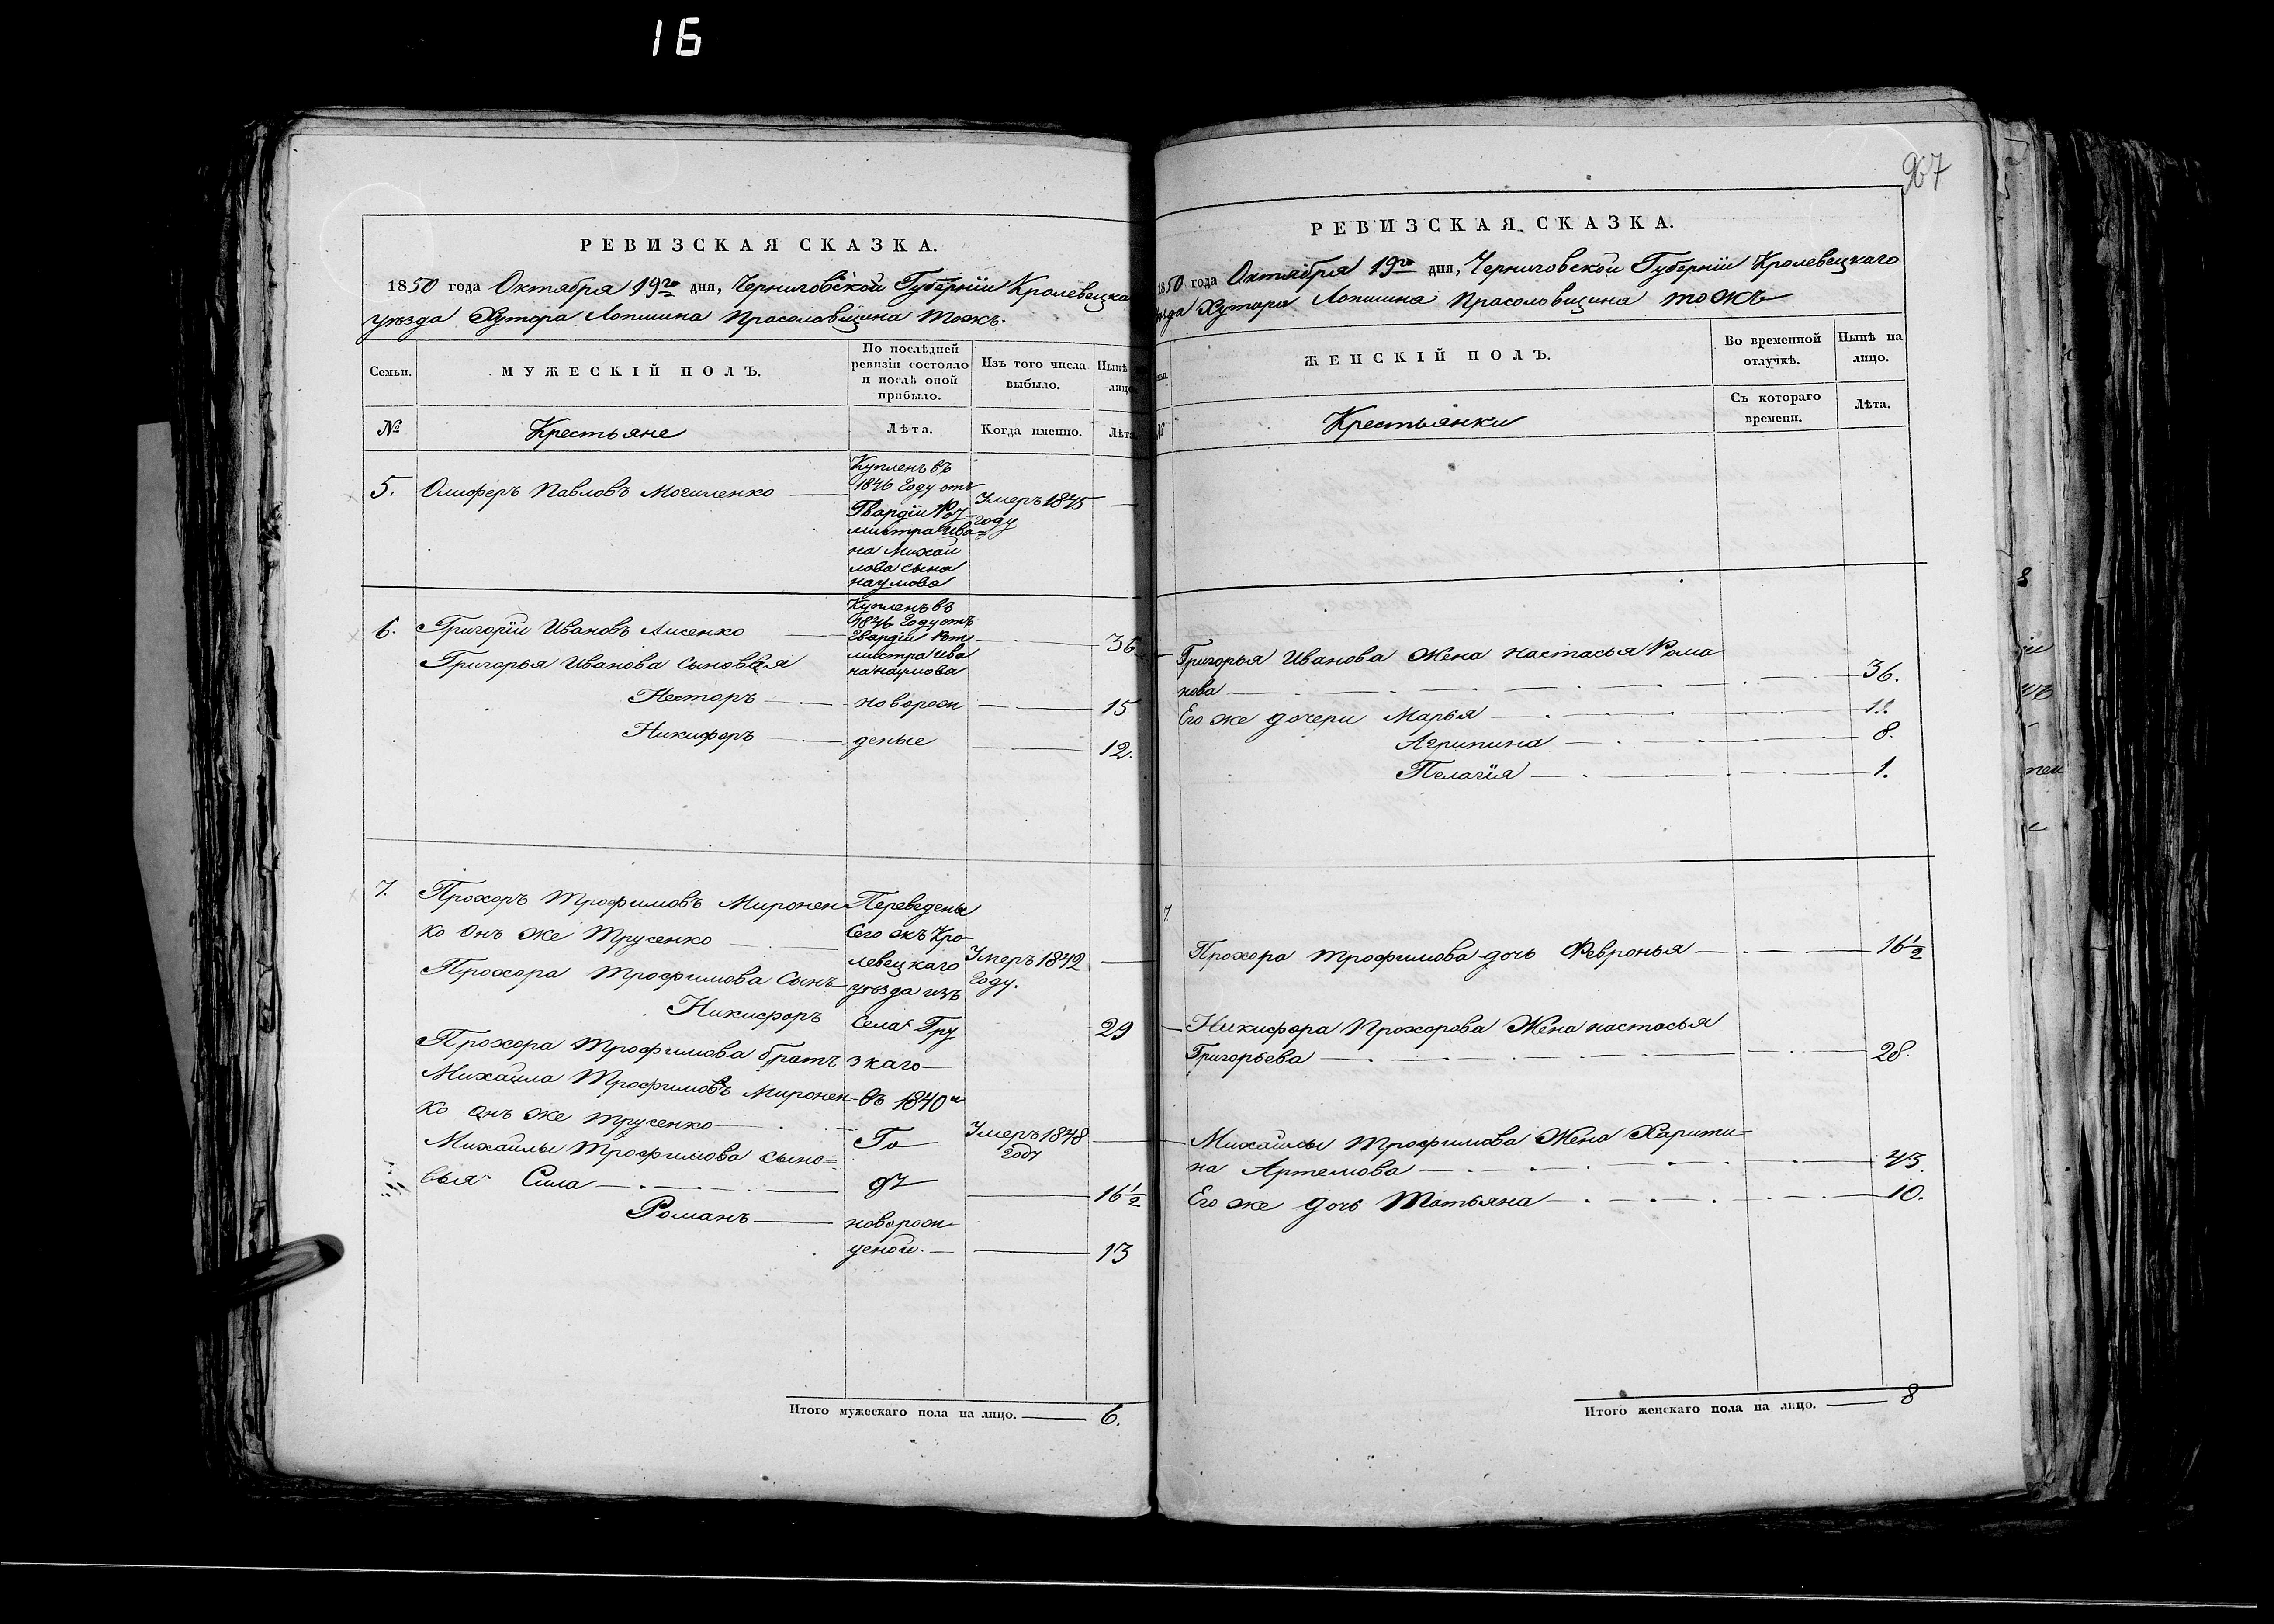 16
РЕВИЗСКАЯ СКАЗКА.
1850 года Октября 19го дня, Черниговской Губерніи Кролевецка
уезда Хутора Лопшина Прасоловщина тожъ.
Семьи.
МУЖЕСКІЙ ПОЛЪ.
По послѣдней ревизіи состояло и послѣ оной прибыло.
Изъ того числа выбыло.
Нынѣ лицо
№
Крестьяне
Лѣта.
Когда именно.
Лѣта
5. Олиферъ Павловъ Могиленко
Купленъ въ
1846 Году отъ
Гвардіи Рот
мистра Ива=
на Михай
лова сына
наумова
Умеръ 1845
году
6. Григорій Ивановъ Лисенко — 36
Купленъ въ
1846 Году отъ
Гвардіи Рот
мистра Ива
на наумова
Григорья Иванова сыновья
Несторъ — новорож — 15
Никифоръ — деные — 12.
7. Прохоръ Трофимовъ Миронен
ко онъ же Трусенко
Переведены
сего жъ Кро
левецкаго
уезда изъ
Села Гру
зкаго
въ 1840м
Го
ду
Умеръ 1842
Году.
Прохора Трофимова Сынъ
Никифоръ 29
Прохора Трофимова братъ
Михайла Трофимовъ Миронен
ко онъ же Трусенко
Умеръ 1848
году
Михайлы Трофимова сыно=
вья Сила — 16½
Романъ — новорож
деной. — 13
Итого мужескаго пола на лицо. — 6.
967
РЕВИЗСКАЯ СКАЗКА.
1850 года Октября 19го дня, Черниговской Губерніи Кролевецкаго
езда Хутора Лопшина Прасоловщина тожъ
ЖЕНСКІЙ ПОЛЪ.
Во временной отлучкѣ.
Нынѣ на лицо.
№
Крестьянки
Съ котораго времени.
Лѣта.
Григорья Иванова Жена настасья Рома
нова — 36.
Его же дочери Марья — 11.
Агрипина — 8.
Пелагія — 1.
7.
Прохора Трофимова дочь Февронья — 16½
Никифора Прохорова Жена настасья
Григорьева — 28.
Михайлы Трофимова Жена Харити=
на Артемова — 43.
Его же дочь Татьяна — 10.
Итого женскаго пола на лицо. — 8